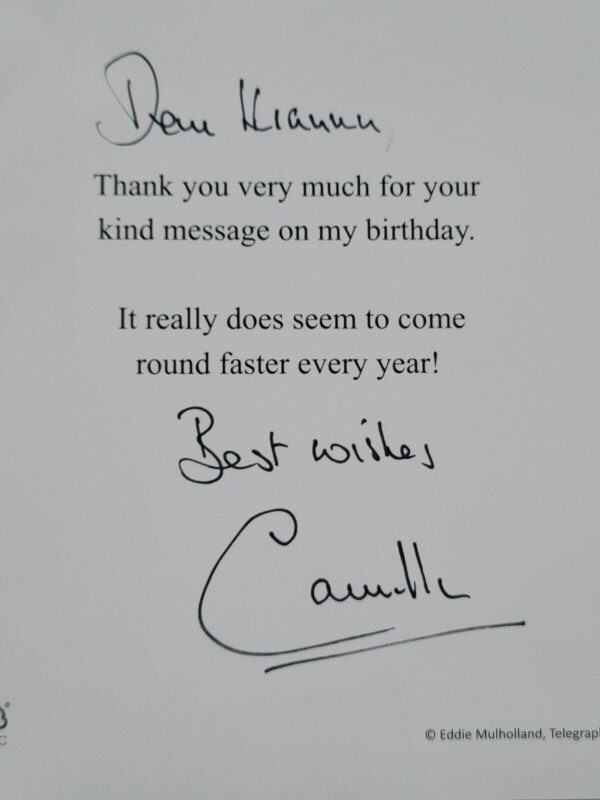 Dear Kiannu
Thank you very much for your
kind message on my birthday.
It really does seem to come
round faster every year!
Best wishes
Camilla
© Eddie Mulholland, Telegraph